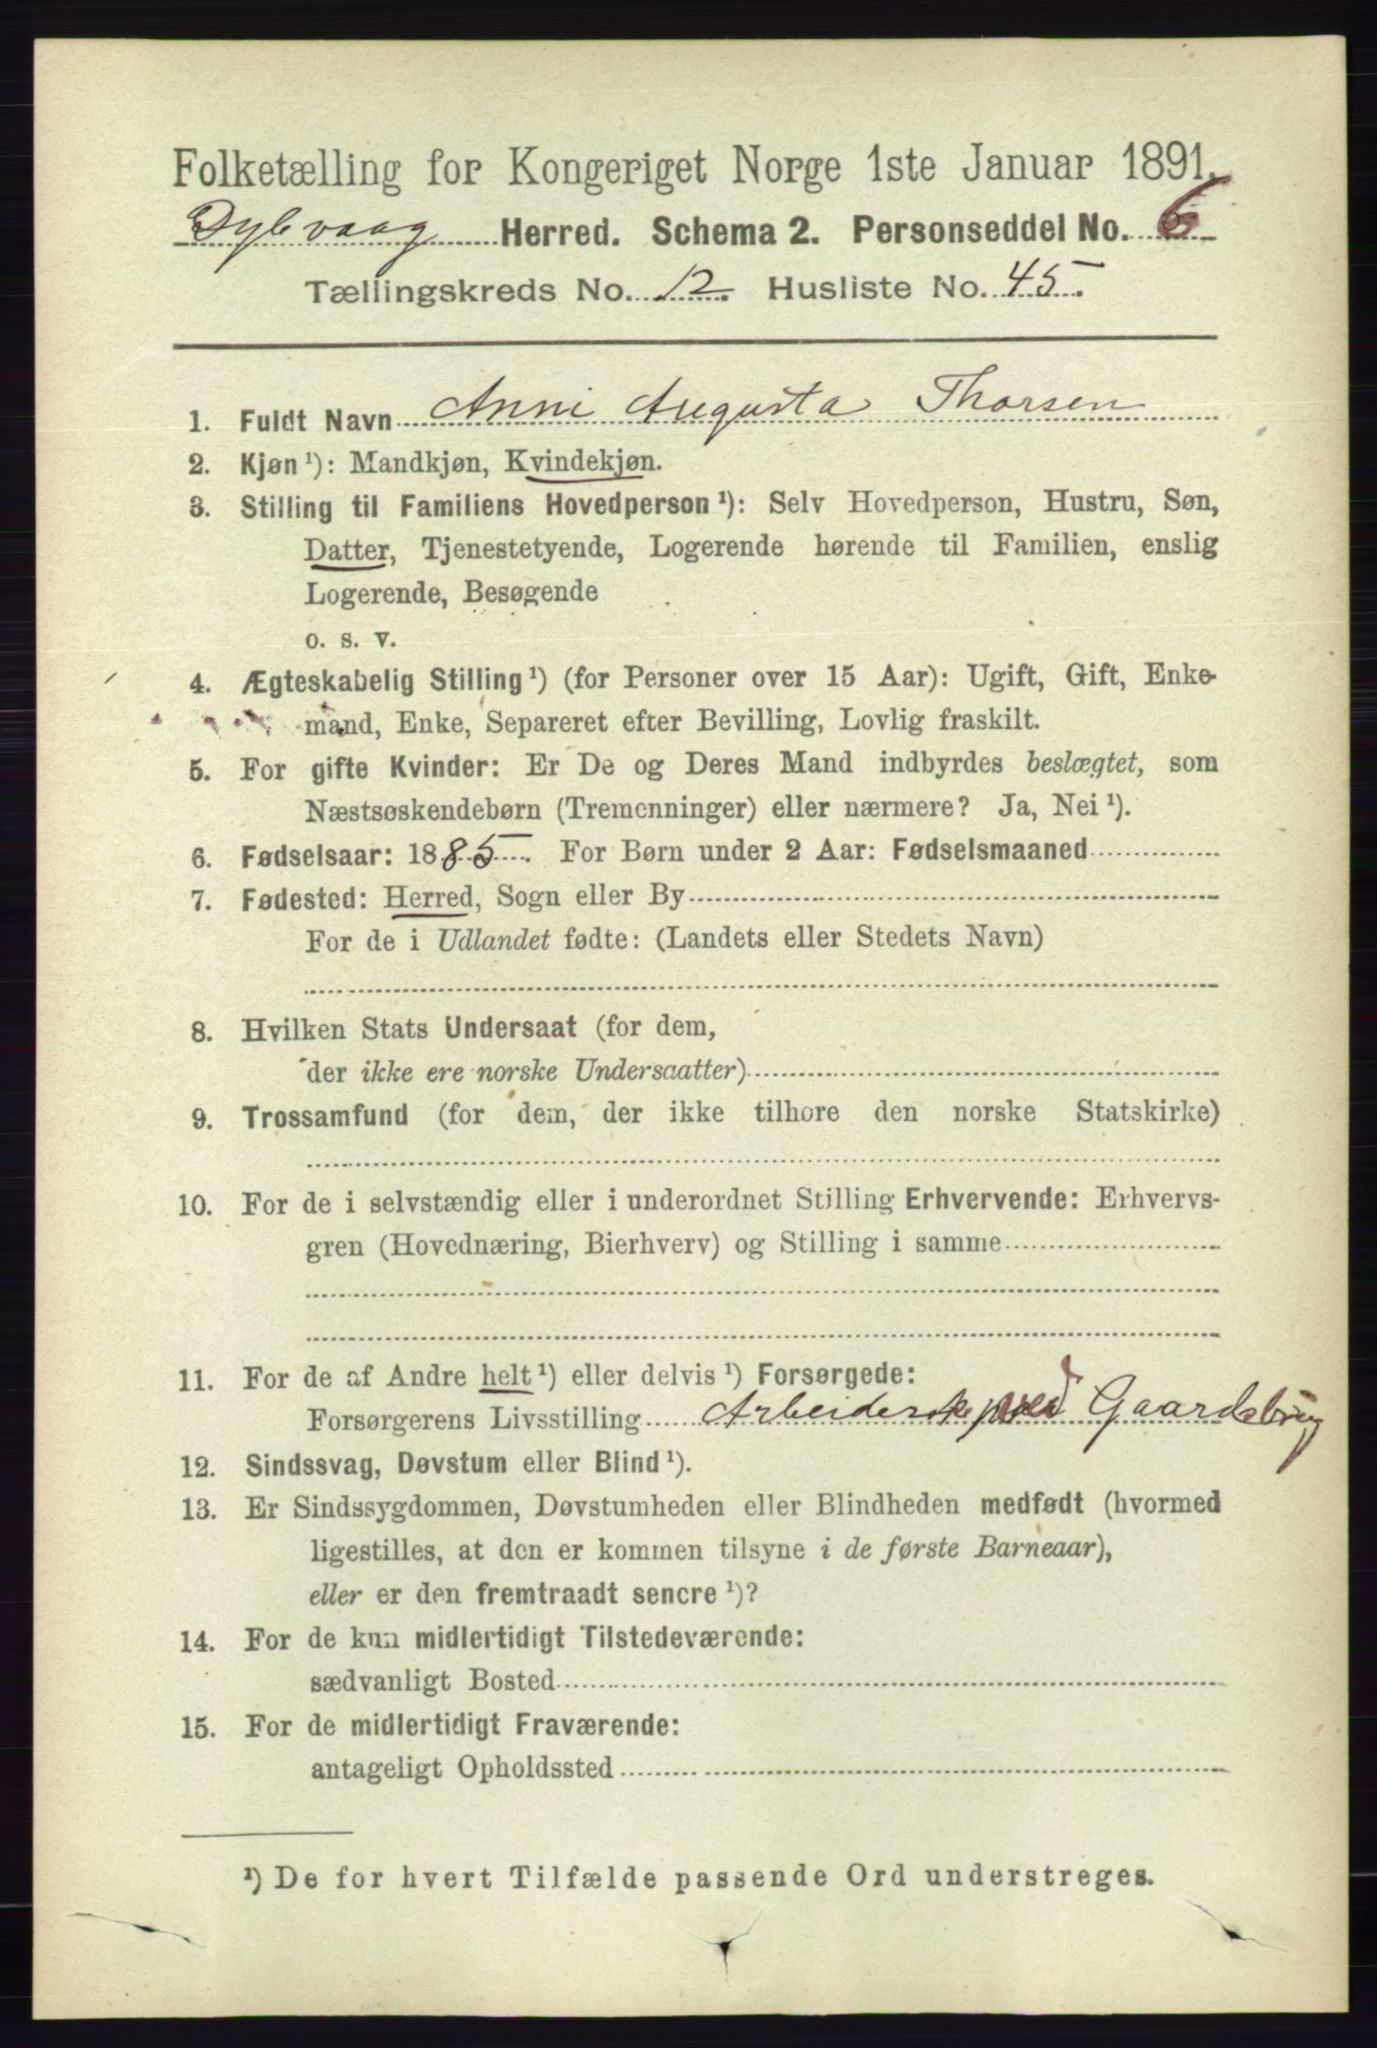 Folketælling for Kongeriget Norge 1ste Januar 1891.
Dybvaag Herred. Schema 2. Personseddel No. 6
Tællingskreds No. 12. Husliste No. 45.
1. Fuldt Navn Anni Augusta Thorsen
2. Kjøn ¹): Mandkjøn, Kvindekjøn.
3. Stilling til Familiens Hovedperson ¹): Selv Hovedperson, Hustru, Søn,
Datter, Tjenestetyende, Logerende hørende til Familien, enslig
Logerende, Besøgende
o. s. v.
4. Ægteskabelig Stilling ¹) (for Personer over 15 Aar): Ugift, Gift, Enke-
mand, Enke, Separeret efter Bevilling, Lovlig fraskilt.
5. For gifte Kvinder: Er De og Deres Mand indbyrdes beslægtet, som
Næstsøskendebørn (Tremenninger) eller nærmere? Ja, Nei ¹).
6. Fødselsaar: 1885. For Børn under 2 Aar: Fødselsmaaned
7. Fødested: Herred, Sogn eller By
For de i Udlandet fødte: (Landets eller Stedets Navn)
8. Hvilken Stats Undersaat (for dem,
der ikke ere norske Undersaatter)
9. Trossamfund (for dem, der ikke tilhøre den norske Statskirke)
10. For de i selvstændig eller i underordnet Stilling Erhvervende: Erhvervs-
gren (Hovednæring, Bierhverv) og Stilling i samme
11. For de af Andre helt ¹) eller delvis ¹) Forsørgede:
Forsørgerens Livsstilling Arbeiderske ved Gaardsbrug
12. Sindssvag, Døvstum eller Blind ¹).
13. Er Sindssygdommen, Døvstumheden eller Blindheden medfødt (hvormed
ligestilles, at den er kommen tilsyne i de første Barneaar),
eller er den fremtraadt senere ¹)?
14. For de kun midlertidigt Tilstedeværende:
sædvanligt Bosted
15. For de midlertidigt Fraværende:
antageligt Opholdssted
¹) De for hvert Tilfælde passende Ord understreges.